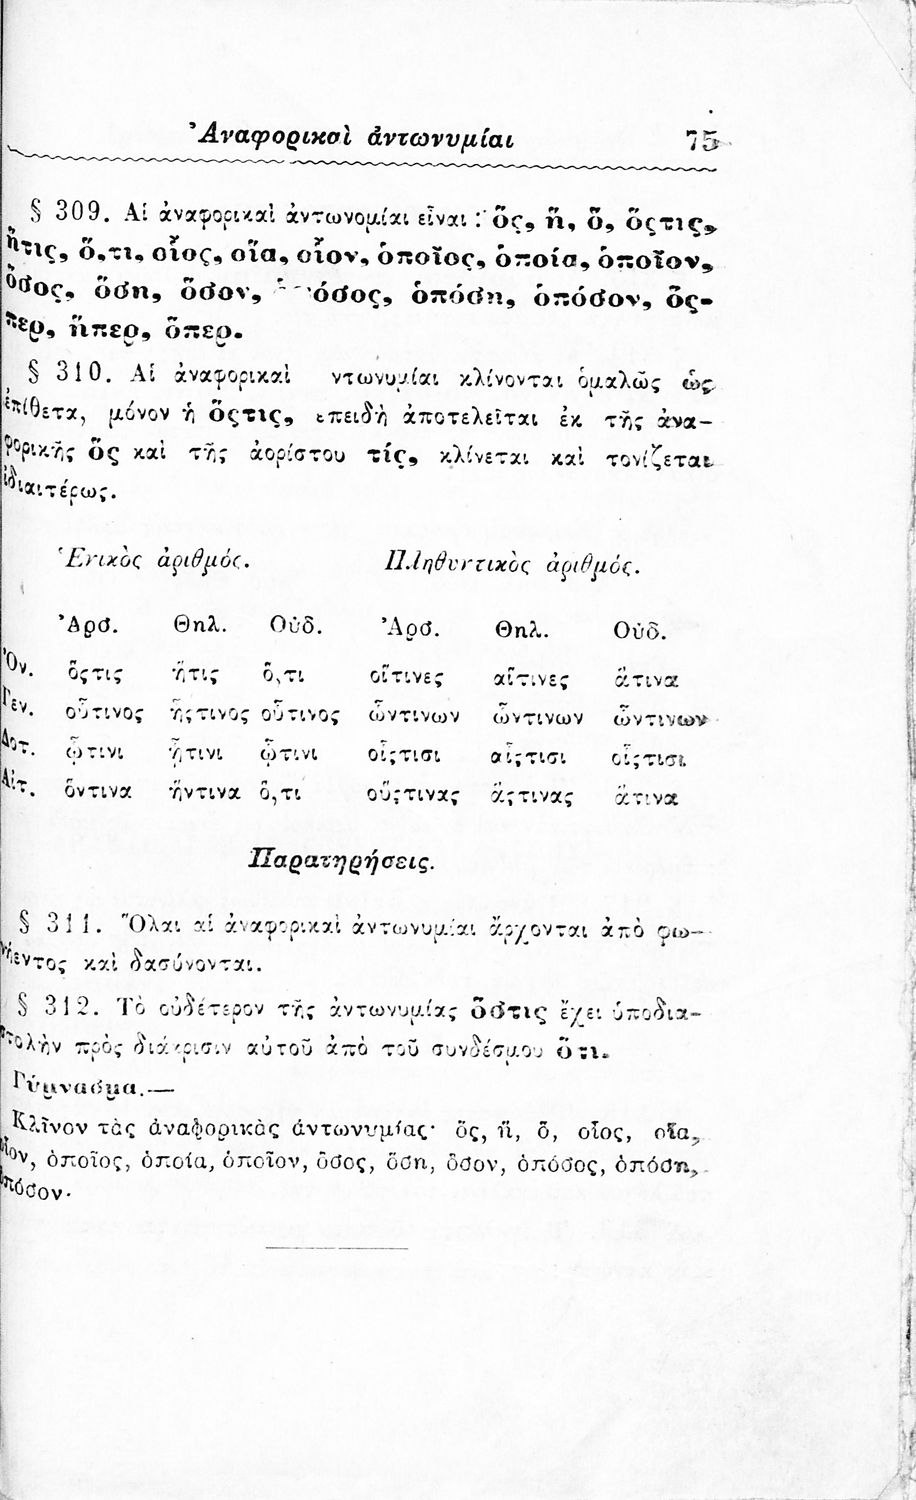 Ἀναφορικαὶ ἀντωνυμίαι 75
§ 309. Αἱ ἀναφορικαὶ ἀντωνομίαι εἶναι : ὅς, ἥ, ὅ, ὅςτις,
ἥτις, ὅ,τι, οἷος, οἵα, οἷον, ὁποῖος, ὁποία, ὁποῖον,
ὅσος, ὅση, ὅσον, ὁπόσος, ὁπόση, ὁπόσον, ὅς-
περ, ἥπερ, ὅπερ.
§ 310. Αἱ ἀναφορικαὶ ντωνυμίαι κλίνονται ὁμαλῶς ὡς
ἐπίθετα, μόνον ἡ ὅςτις, ἐπειδὴ ἀποτελεῖται ἐκ τῆς ἀνα-
φορικῆς ὅς καὶ τῆς ἀορίστου τίς, κλίνεται καὶ τονίζεται
ἰδιαιτέρως.
Ἑνικὸς ἀριθμός. Πληθυντικὸς ἀριθμός.
Ἀρσ. Θηλ. Οὐδ. Ἀρσ. Θηλ. Οὐδ.
Ὀν. ὅςτις ἥτις ὅ,τι οἵτινες αἵτινες ἅτινα
Γεν. οὗτινος ἧςτινος οὗτινος ὧντινων ὧντινων ὧντινων
Δοτ. ᾧτινι ᾗτινι ᾧτινι οἷςτισι αἷςτισι οἷςτισι
Αἰτ. ὅντινα ἥντινα ὅ,τι οὕςτινας ἅςτινας ἅτινα
Παρατηρήσεις.
§ 311. Ὅλαι αἱ ἀναφορικαὶ ἀντωνυμίαι ἄρχονται ἀπὸ φω-
νήεντος καὶ δασύνονται.
§ 312. Τὸ οὐδέτερον τῆς ἀντωνυμίας ὅστις ἔχει ὑποδια-
στολὴν πρὸς διάκρισιν αὐτοῦ ἀπὸ τοῦ συνδέσμου ὅτι.
Γύμνασμα.—
Κλῖνον τὰς ἀναφορικὰς ἀντωνυμίας· ὅς, ἥ, ὅ, οἷος, οἵα,
οἷον, ὁποῖος, ὁποία, ὁποῖον, ὅσος, ὅση, ὅσον, ὁπόσος, ὁπόση,
ὁπόσον·